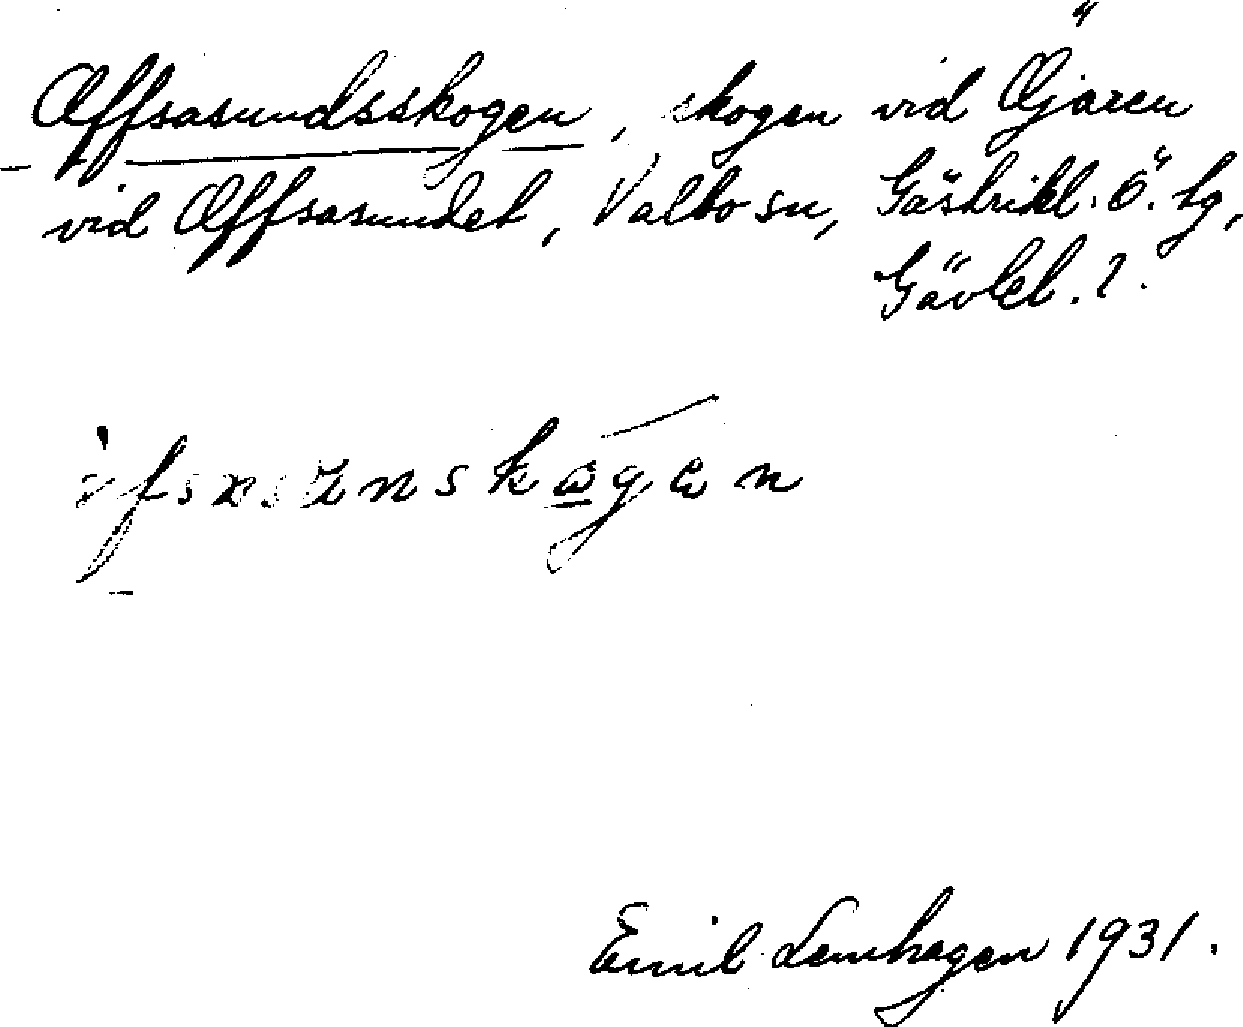 Offsasundsskogen, skogen vid Öjaren
vid Offsasundet, Valbo sn, Gästrikl. ö. tg,
Gävleb. l.
Emil Lenhagen 1931.